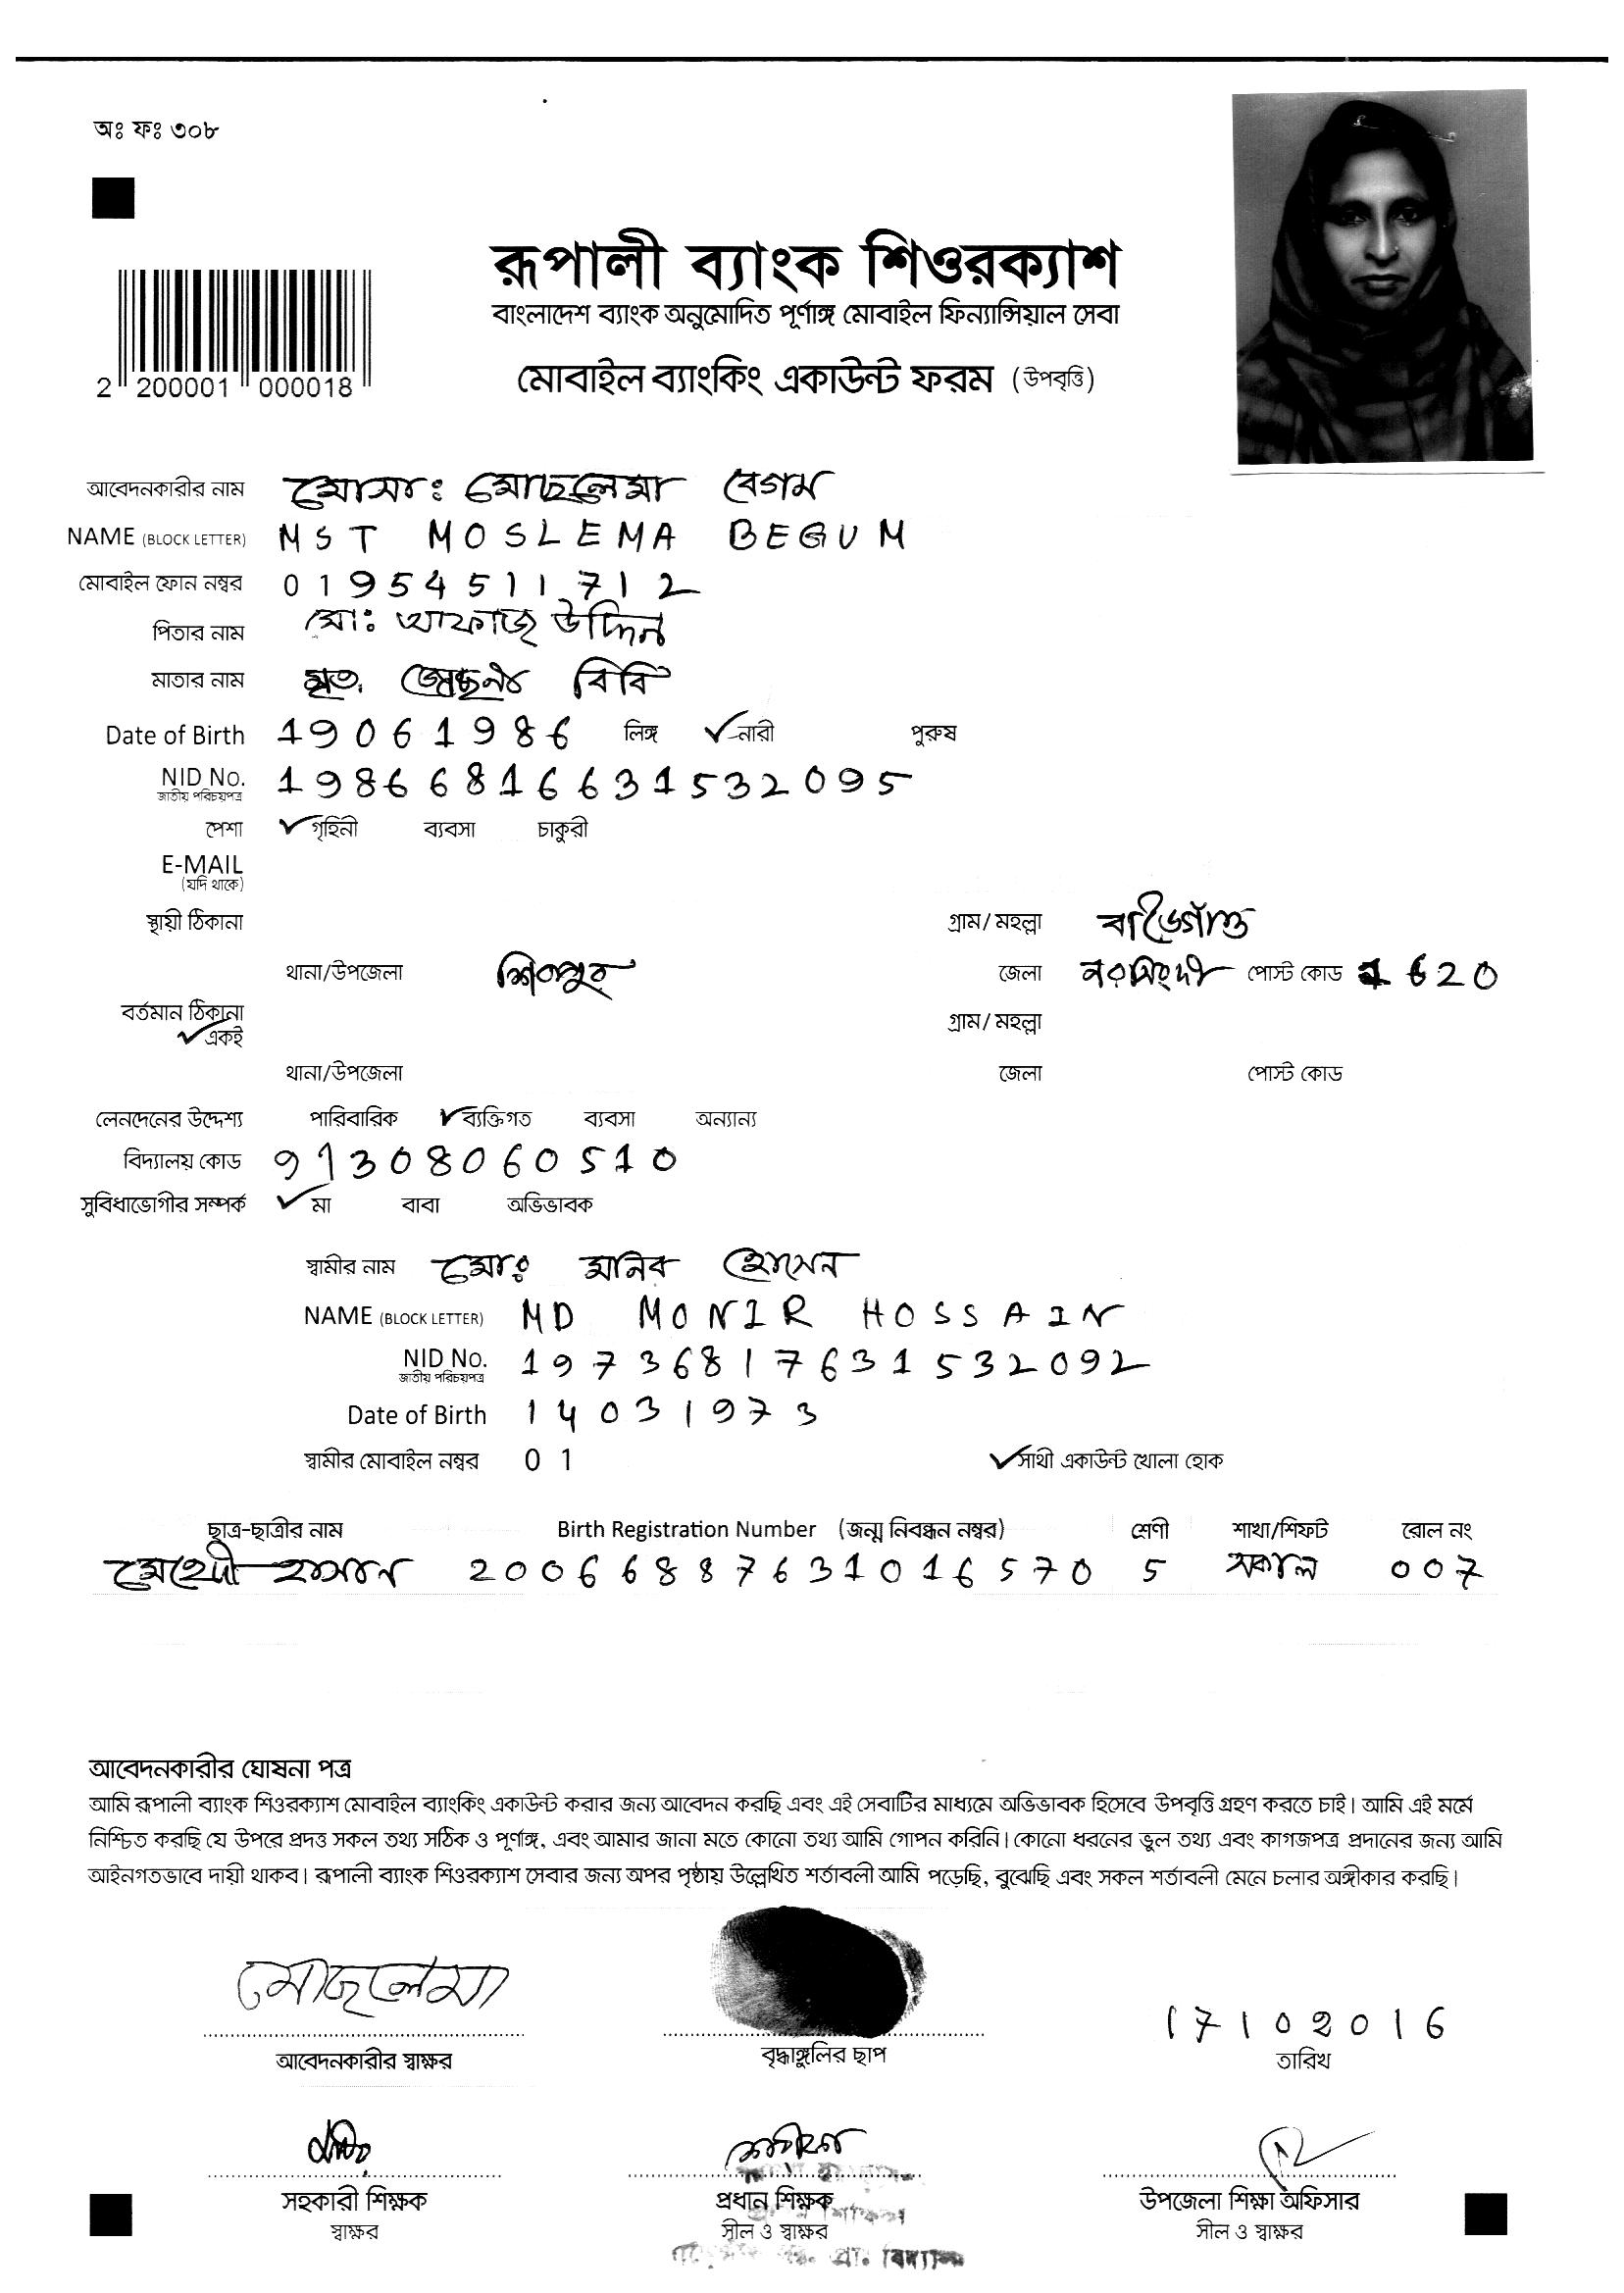 অঃ ফঃ ৩০৮
2 200001 000018
রূপালী ব্যাংক শিওরক্যাশ
বাংলাদেশ ব্যাংক অনুমোদিত পূর্ণাঙ্গ মোবাইল ফিন্যান্সিয়াল সেবা
মোবাইল ব্যাংকিং একাউন্ট ফরম (উপবৃত্তি)
আবেদনকারীর নাম মোসাঃ মোছলেমা বেগম
NAME (BLOCK LETTER) MST MOSLEMA BEGUM
মোবাইল ফোন নম্বর 01954511712
পিতার নাম মোঃ আফাজ উদ্দিন
মাতার নাম মৃত. বিবি
Date of Birth 19061986 লিঙ্গ ✓ নারী পুরুষ
NID No. 19866816631532095
জাতীয় পরিচয়পত্র
পেশা ✓ গৃহিনী ব্যবসা চাকুরী
E-MAIL
(যদি থাকে)
স্থায়ী ঠিকানা গ্রাম/ মহল্লা
থানা/উপজেলা শিবপুর জেলা নরসিংদী পোস্ট কোড 1620
বর্তমান ঠিকানা
✓ একই গ্রাম/ মহল্লা
থানা/উপজেলা জেলা পোস্ট কোড
লেনদেনের উদ্দেশ্য পারিবারিক ✓ ব্যক্তিগত ব্যবসা অন্যান্য
বিদ্যালয় কোড 91308060510
সুবিধাভোগীর সম্পর্ক ✓ মা বাবা অভিভাবক
স্বামীর নাম মোঃ মনির হোসেন
NAME (BLOCK LETTER) MD MONIR HOSSAIN
NID No. 19736817631532092
জাতীয় পরিচয়পত্র
Date of Birth 14031973
স্বামীর মোবাইল নম্বর 01 ✓ সাথী একাউন্ট খোলা হোক
ছাত্র-ছাত্রীর নাম Birth Registration Number (জন্ম নিবন্ধন নম্বর) শ্রেণী শাখা/শিফট রোল নং
মেহেদী হাসান 20066887631016570 5 সকাল 007
আবেদনকারীর ঘোষনা পত্র
আমি রূপালী ব্যাংক শিওরক্যাশ মোবাইল ব্যাংকিং একাউন্ট করার জন্য আবেদন করছি এবং এই সেবাটির মাধ্যমে অভিভাবক হিসেবে উপবৃত্তি গ্রহণ করতে চাই। আমি এই মর্মে
নিশ্চিত করছি যে উপরে প্রদত্ত সকল তথ্য সঠিক ও পূর্ণাঙ্গ, এবং আমার জানা মতে কোনো তথ্য আমি গোপন করিনি। কোনো ধরনের ভুল তথ্য এবং কাগজপত্র প্রদানের জন্য আমি
আইনগতভাবে দায়ী থাকব। রূপালী ব্যাংক শিওরক্যাশ সেবার জন্য অপর পৃষ্ঠায় উল্লেখিত শর্তাবলী আমি পড়েছি, বুঝেছি এবং সকল শর্তাবলী মেনে চলার অঙ্গীকার করছি।
মোছলেমা 17102016
আবেদনকারীর স্বাক্ষর বৃদ্ধাঙ্গুলির ছাপ তারিখ
সহকারী শিক্ষক প্রধান শিক্ষক উপজেলা শিক্ষা অফিসার
স্বাক্ষর সীল ও স্বাক্ষর সীল ও স্বাক্ষর
প্রাঃ বিদ্যালয়